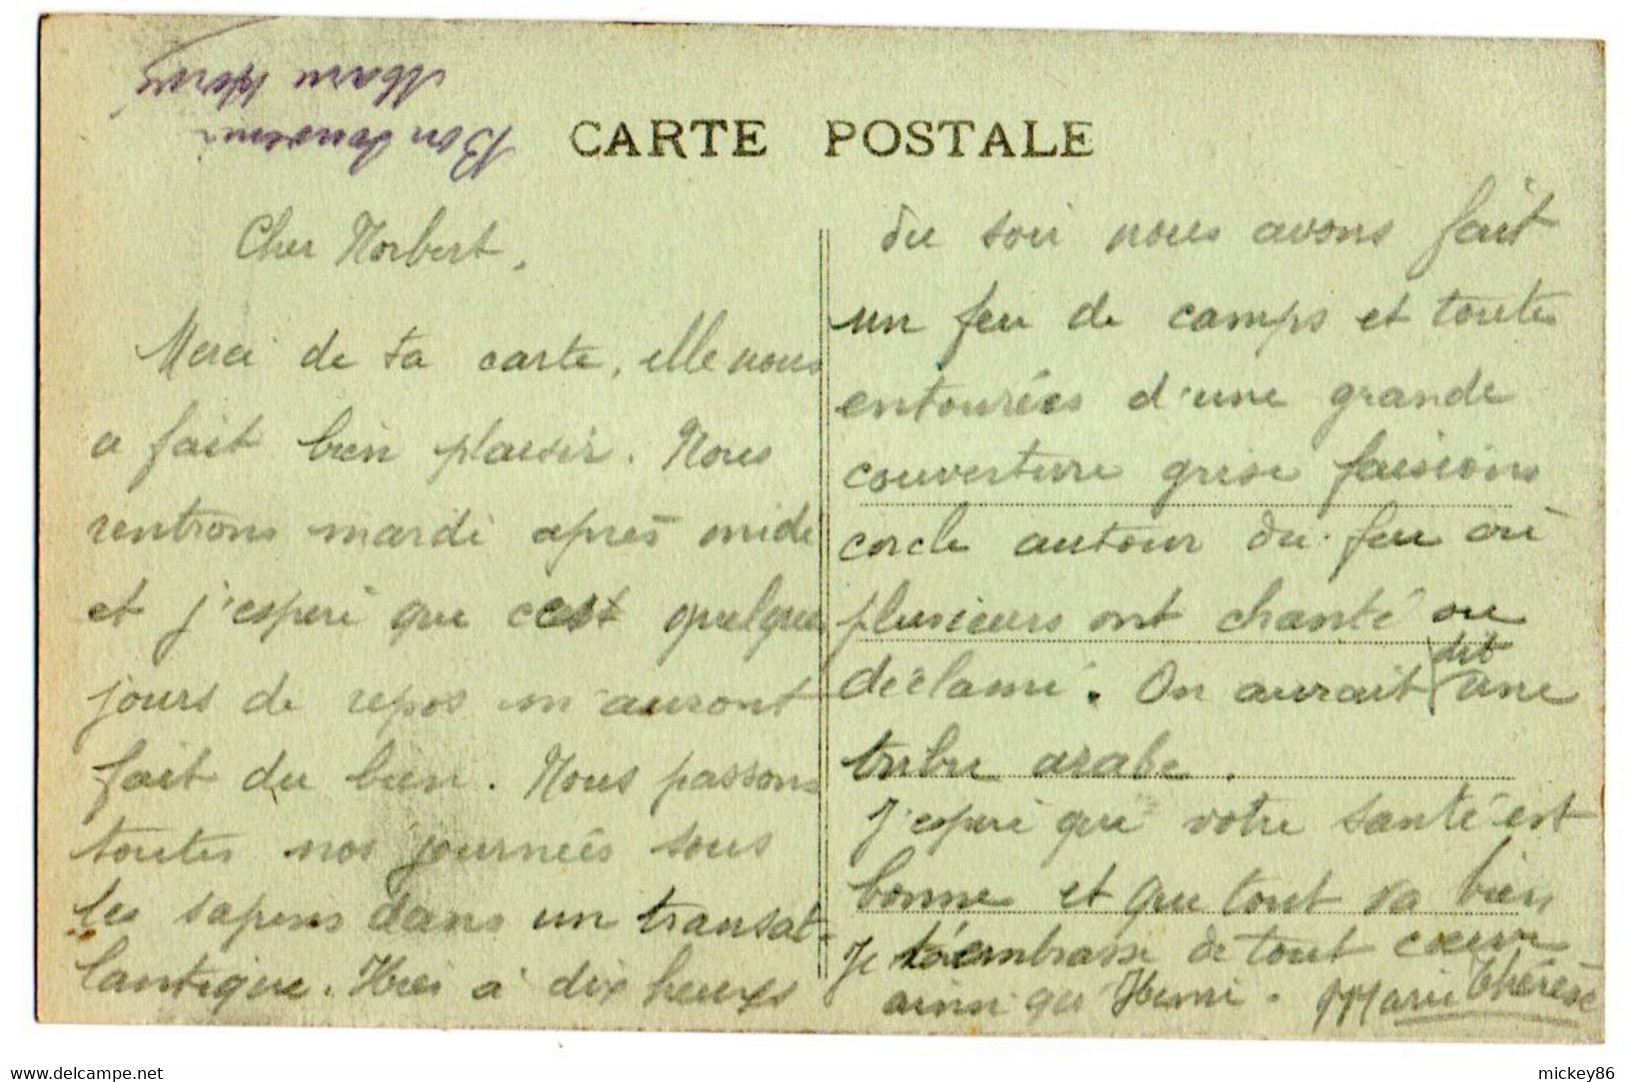 Bon souvenir
CARTE POSTALE
Cher Norbert,
Merci de ta carte, elle nous
a fait bien plaisir. Nous
rentrons mardi après midi
et j'espère que cest quelque
jours de repos m'auront
fait du bien. Nous passons
toutes nos journées sous
les sapins dans un transat-
lantique. Hier à dix heures
du soir nous avons fait
un feu de camps et toutes
entourées d'une grande
couverture grise faisions
cercle autour du feu où
plusieurs ont chanté ou
déclamé. On aurait dit une
tribu arabe.
J'espère que votre santé est
bonne et que tout va bien
Je t'embrasse de tout cœur
ainsi qu'Henri. Marie Thérèse
www.delcampe.net
mickey86